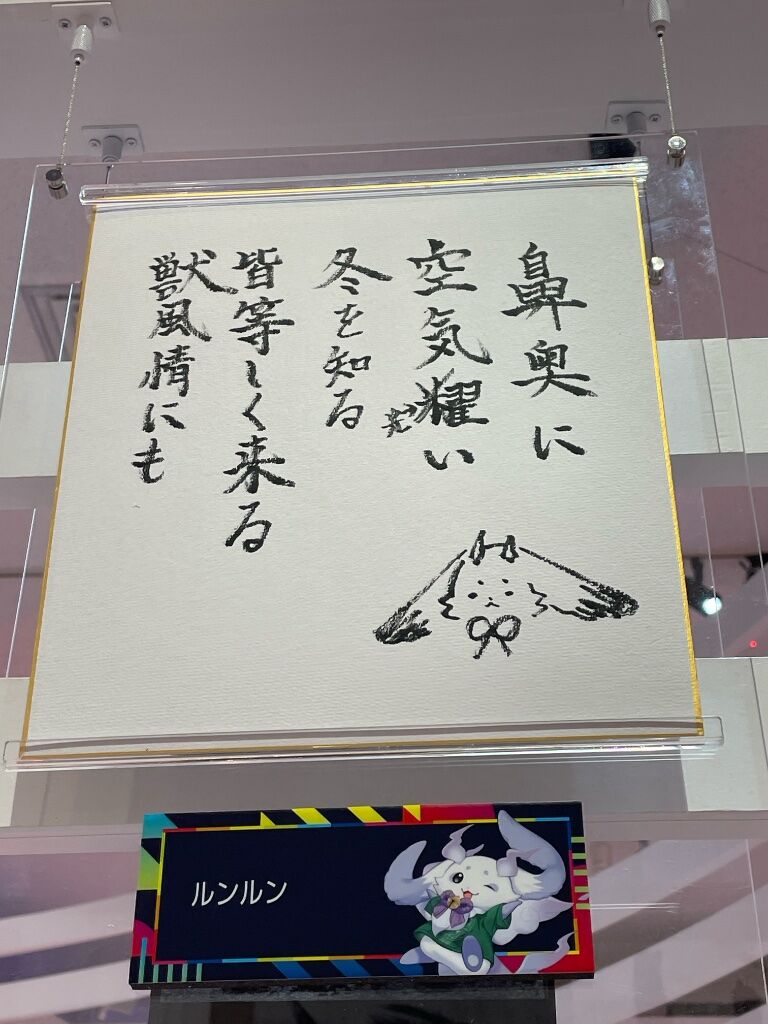 鼻奥に
空気耀い
冬を知る
皆等しく来る
獣風情にも
ルンルン